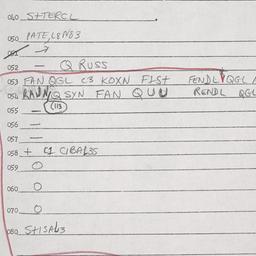 040 S+TERCL
050 PATE,L8AB3
051 →
052 — Q RUSS
053 FAN QGL C3 KOXN F1ST FENDL QGL
054 RAUN Q SYN FAN QUU RENDL QGL
055 — (113)
056 —
057 —
058 + C1 C1BAL3S
059 O
060 O
070 O
080 S+1SAL3